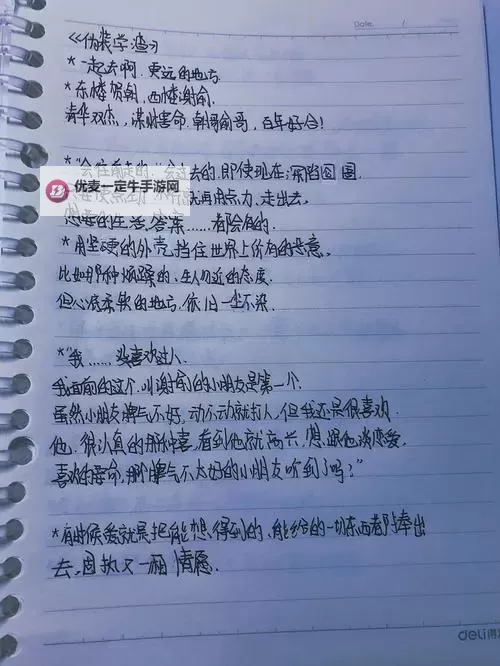 Date. /
《伪装学渣》
*一起去啊.更远的地方
*东楼贺朝,西楼谢俞.
清华双杰,谋财害命.朝哥俞哥,百年好合!
*"会往前走的,会过去的,即使现在深陷囹圄.
优麦一定牛手游网
就再用点力,走出去,
想要的生活,答案……都会有的.
*用坚硬的外壳,挡住世界上所有的恶意.
比如那种烦躁的、生人勿近的态度.
但心底柔软的地方,依旧一尘不染.
*"我……没喜欢过人.
我面前的这个,叫谢俞的小朋友是第一个.
虽然小朋友脾气不好,动不动就打人,但我还是很喜欢
他.很认真的那种喜
喜欢的要命,那个脾气不太好的小朋友听到了吗?"
*有时候爱就是把能想得到的、能给的一切东西都捧出
去,固执又一厢情愿.
deli得